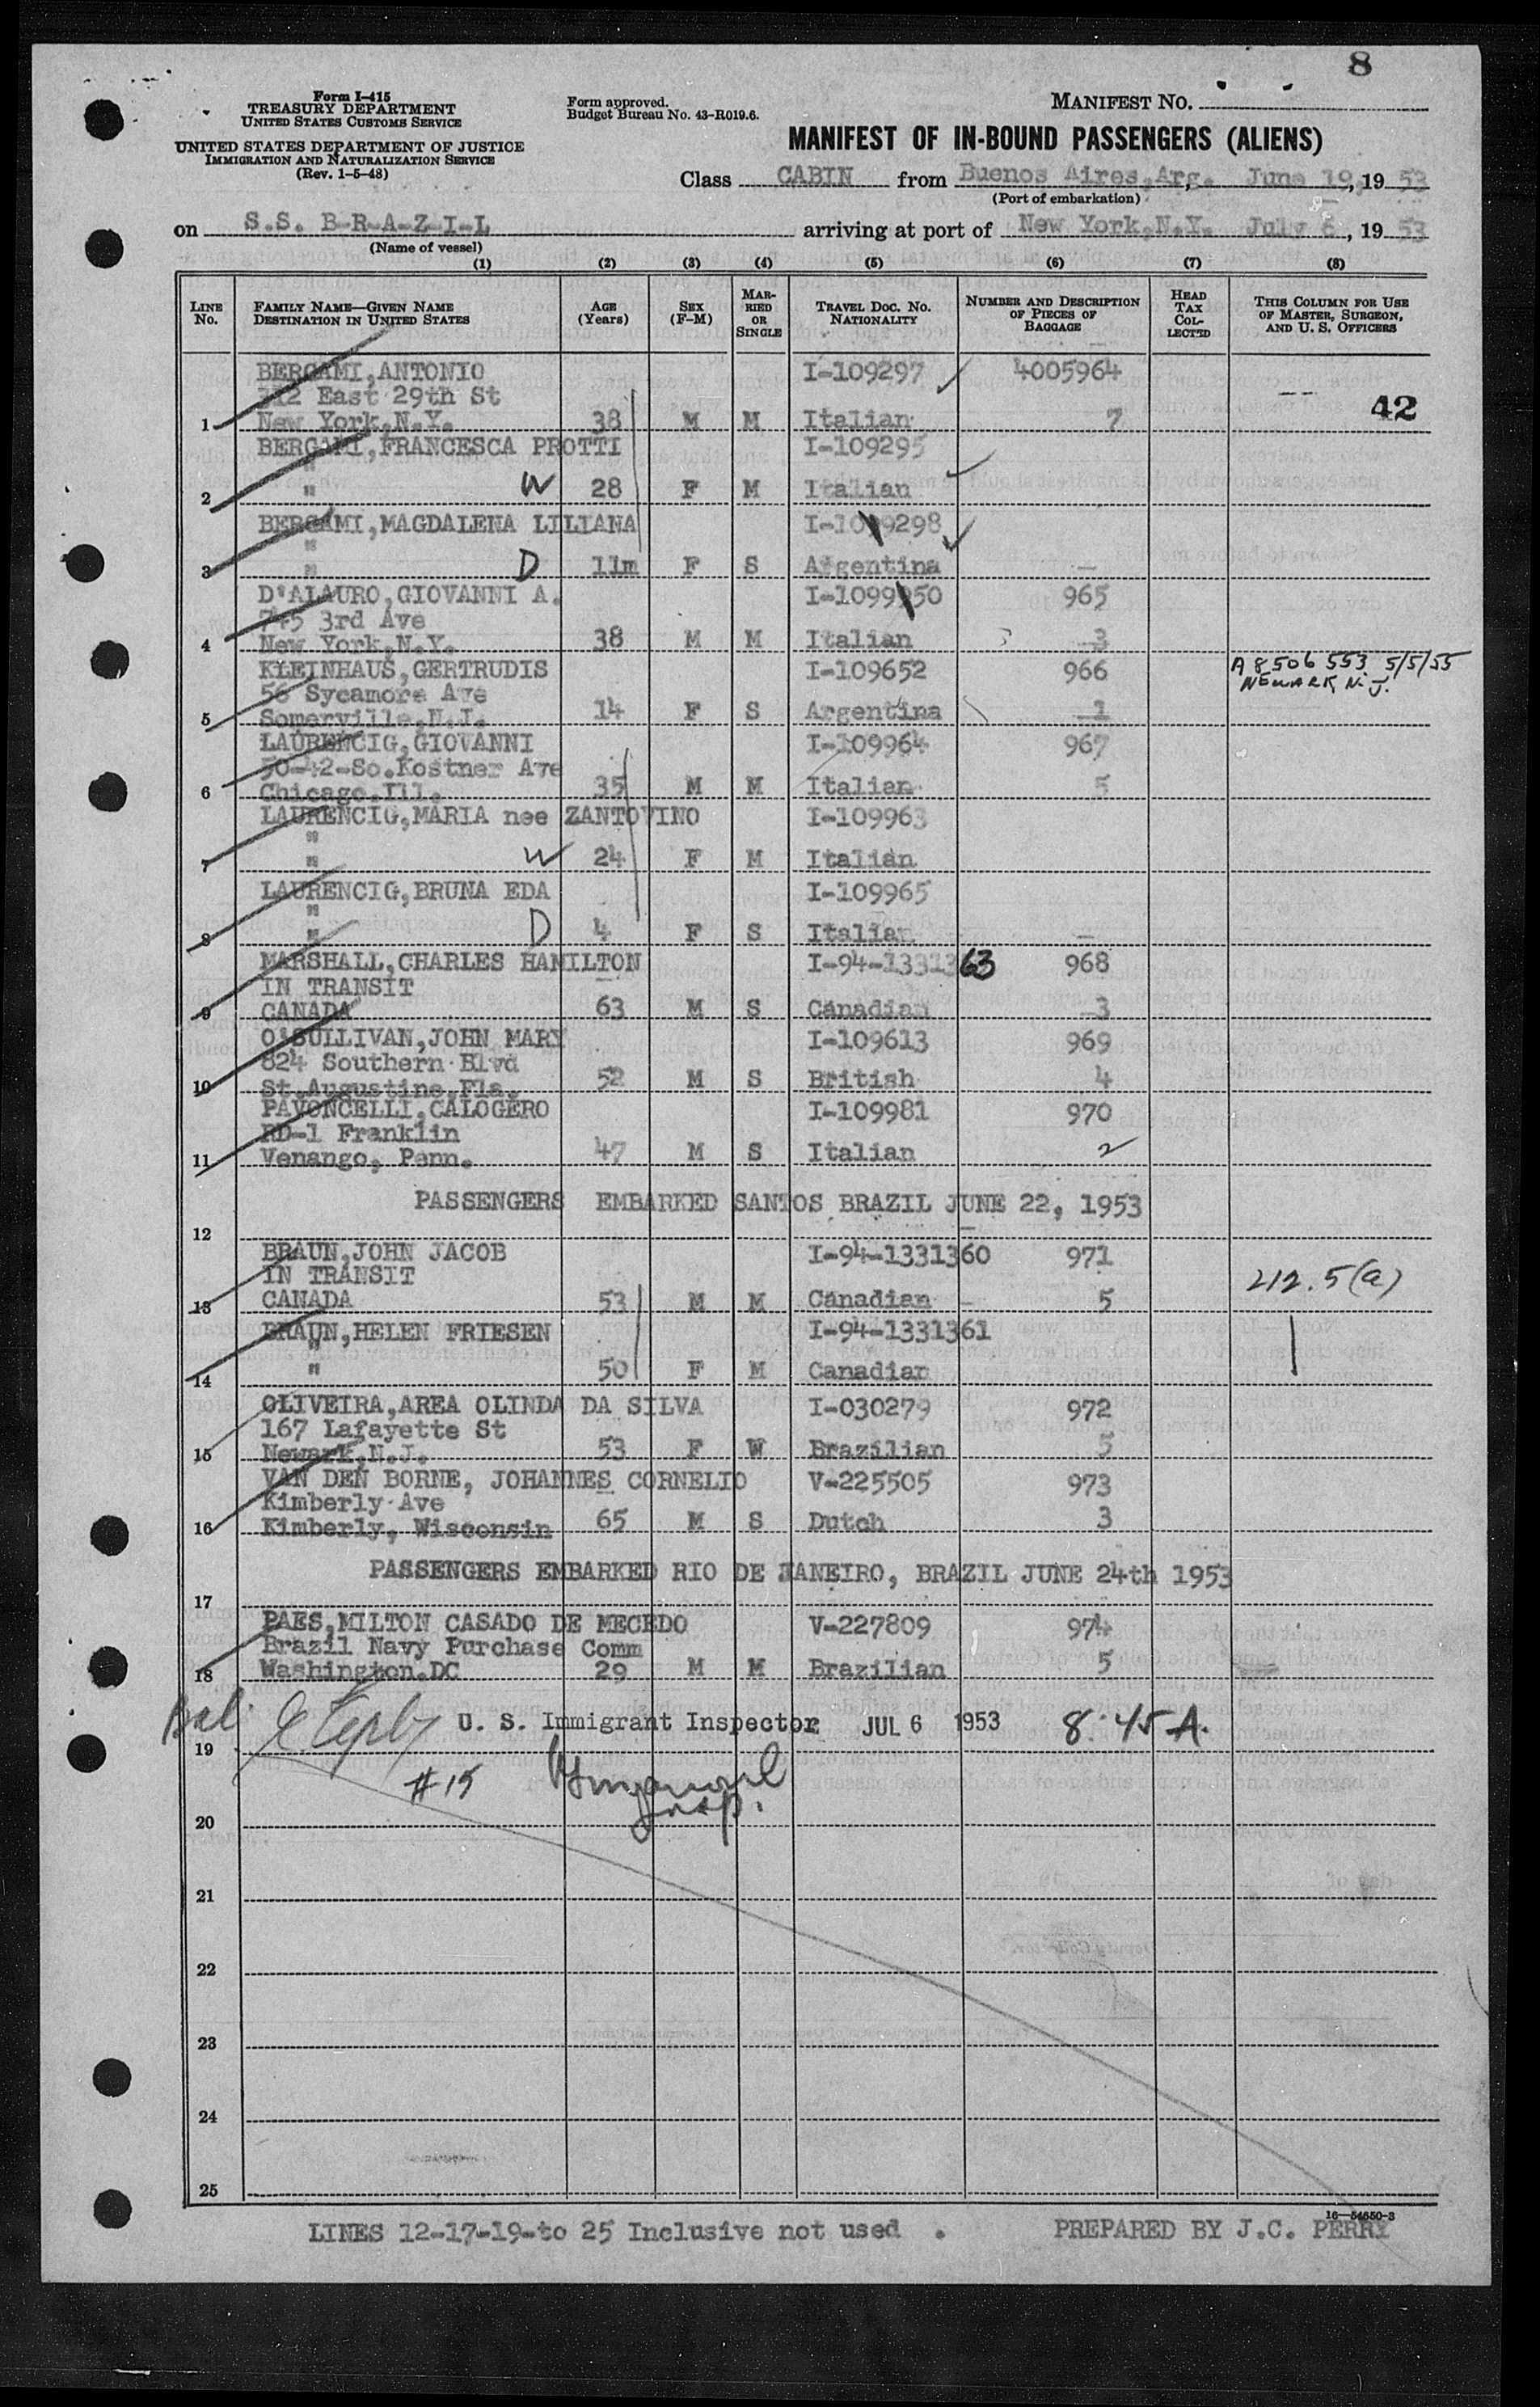 8
Form I-415
TREASURY DEPARTMENT
UNITED STATES CUSTOMS SERVICE
UNITED STATES DEPARTMENT OF JUSTICE
IMMIGRATION AND NATURALIZATION SERVICE
(Rev. 1-5-48)
Form approved.
Budget Bureau No. 43-R019.6.
MANIFEST NO.
MANIFEST OF IN-BOUND PASSENGERS (ALIENS)
Class CABIN from Buenos Aires,Arg. June 19, 1953
(Port of embarkation)
on S.S. B-R-A-Z-I-L arriving at port of New York,N.Y. July 6, 1953
(Name of vessel)
(1) (2) (3) (4) (5) (6) (7) (8)
LINE No. FAMILY NAME—GIVEN NAME DESTINATION IN UNITED STATES AGE (Years) SEX (F-M) MARRIED OR SINGLE TRAVEL DOC. NO. NATIONALITY NUMBER AND DESCRIPTION OF PIECES OF BAGGAGE HEAD TAX COLLECTED THIS COLUMN FOR USE OF MASTER, SURGEON, AND U. S. OFFICERS
BERGAMI,ANTONIO I-109297 4005964
312 East 29th St 42
1 New York,N.Y. 38 M M Italian 7
BERGAMI,FRANCESCA PROTTI I-109295
"
2 " W 28 F M Italian
BERGAMI,MAGDALENA LILIANA I-109298
"
3 " D 11m F S Argentina —
D'ALAURO,GIOVANNI A. I-109950 965
745 3rd Ave
4 New York,N.Y. 38 M M Italian 3
KLEINHAUS,GERTRUDIS I-109652 966 A8506553 5/5/55
56 Sycamore Ave NEWARK N.J.
5 Somerville,N.J. 14 F S Argentina 1
LAURENCIG,GIOVANNI I-109964 967
50-42-So.Kostner Ave
6 Chicago.Ill. 35 M M Italian 5
LAURENCIG,MARIA nee ZANTOVINO I-109963
"
7 " W 24 F M Italian
LAURENCIG,BRUNA EDA I-109965
"
8 " D 4 F S Italian —
MARSHALL,CHARLES HAMILTON I-94-1331363 968
IN TRANSIT
9 CANADA 63 M S Canadian 3
O'SULLIVAN,JOHN MARY I-109613 969
824 Southern Blvd
10 St.Augustine,Fla. 52 M S British 4
PAVONCELLI,CALOGERO I-109981 970
RD-1 Franklin
11 Venango, Penn. 47 M S Italian 2
PASSENGERS EMBARKED SANTOS BRAZIL JUNE 22, 1953
12
BRAUN,JOHN JACOB I-94-1331360 971
IN TRANSIT 212.5(a)
13 CANADA 53 M M Canadian 5
BRAUN,HELEN FRIESEN I-94-1331361
"
14 " 50 F M Canadian
OLIVEIRA,AREA OLINDA DA SILVA I-030279 972
167 Lafayette St
15 Newark,N.J. 53 F W Brazilian 5
VAN DEN BORNE, JOHANNES CORNELIO V-225505 973
Kimberly Ave
16 Kimberly, Wisconsin 65 M S Dutch 3
PASSENGERS EMBARKED RIO DE JANEIRO, BRAZIL JUNE 24th 1953
17
PAES,MILTON CASADO DE MECEDO V-227809 974
Brazil Navy Purchase Comm
18 Washington.DC 29 M M Brazilian 5
Bal. U. S. Immigrant Inspector JUL 6 1953 8:45 A.
19
#15
Insp.
20
21
22
23
24
25
16—54650-3
LINES 12-17-19-to 25 Inclusive not used . PREPARED BY J.C. PERRY